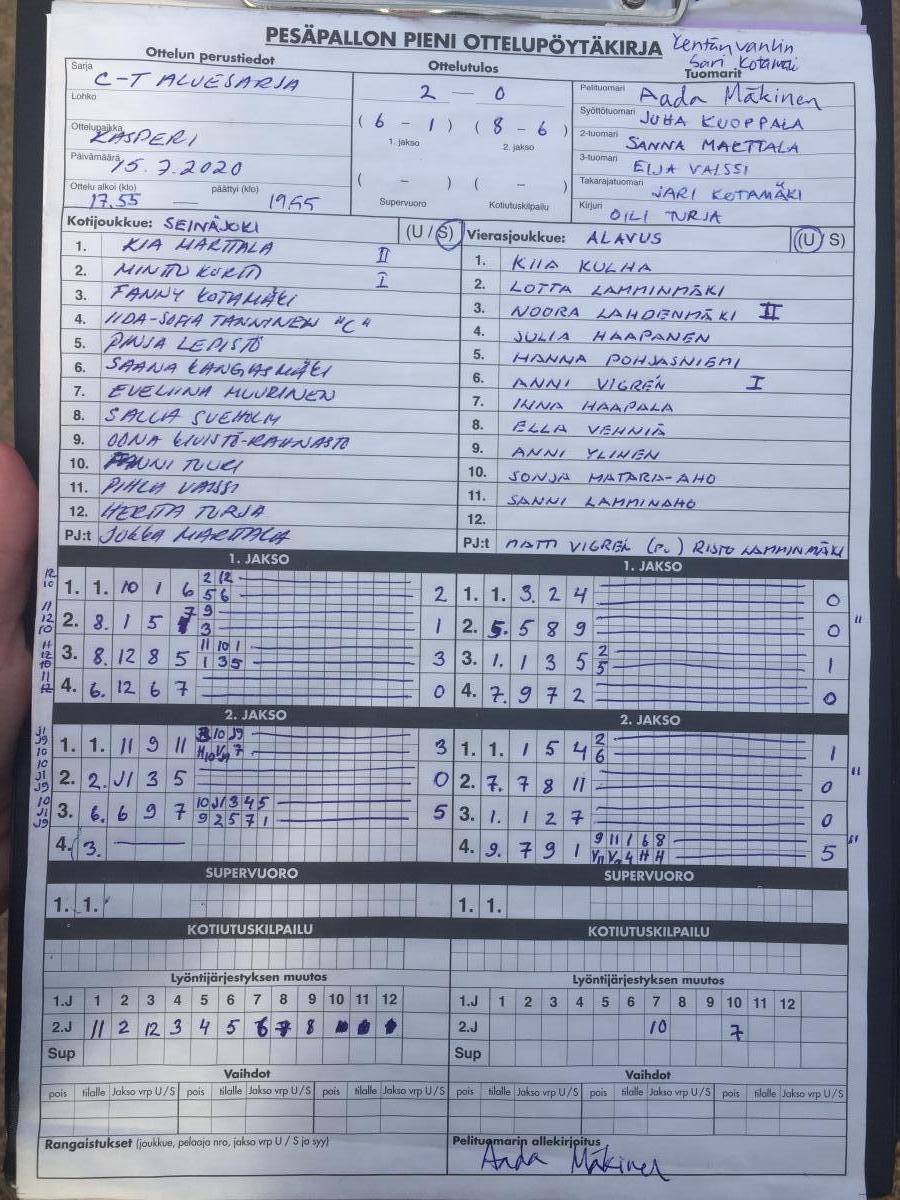 PESÄPALLON PIENI OTTELUPÖYTÄKIRJA
Kentän vanhin
Sari Kotamäki
Ottelun perustiedot
Ottelutulos
Tuomarit
Sarja C-T ALUESARJA
Lohko
Ottelupaikka KASPERI
Päivämäärä 15.7.2020
Ottelu alkoi (klo) päättyi (klo)
17.55 — 1955
2 — 0
( 6 - 1 ) ( 8 - 6 )
1. jakso 2. jakso
( - ) ( - )
Supervuoro Kotiutuskilpailu
Pelituomari Aada Mäkinen
Syöttötuomari JUHA KUOPPALA
2-tuomari SANNA MARTTALA
3-tuomari EIJA VAISSI
Takarajatuomari JARI KOTAMÄKI
Kirjuri OILI TURJA
Kotijoukkue: SEINÄJOKI (U / S)
1. KIA MARTTALA II
2. MINTTU KURTTI I
3. FANNY KOTAMÄKI
4. IIDA-SOFIA TANNINEN "C"
5. PINJA LEPISTÖ
6. SAANA KANGASMÄKI
7. EVELIINA MUURINEN
8. SALLA SVEHOLM
9. OONA KIVISTÖ-RAHNASTO
10. TUURI
11. PIHLA VAISSI
12. HERTTA TURJA
PJ:t JUKKA MARTTALA
Vierasjoukkue: ALAVUS (U / S)
1. KIIA KULHA
2. LOTTA LAMMINMÄKI
3. NOORA LAHDENMÄKI II
4. JULIA HAAPANEN
5. HANNA POHJASNIEMI
6. ANNI VIGREN I
7. INNA HAAPALA
8. ELLA VEHNIÄ
9. ANNI YLINEN
10. SONJA MATARA-AHO
11. SANNI LAMMINAHO
12.
PJ:t MATTI VIGREN (PV) RISTO LAMMINMÄKI
1. JAKSO
1. 1. 10 1 6 2 12 5 6 2
2. 8. 1 5 7 9 3 1
3. 8. 12 8 5 11 10 1 1 3 5 3
4. 6. 12 6 7 0
1. JAKSO
1. 1. 3. 2 4 0
2. 5. 5 8 9 0
3. 1. 1 3 5 2 5 1
4. 7. 9 7 2 0
2. JAKSO
1. 1. 11 9 11 10 J9 7 3
2. 2. J1 3 5 0
3. 6. 6 9 7 10 J1 3 4 5 9 2 5 7 1 5
4. 3.
2. JAKSO
1. 1. 1 5 4 2 6 1
2. 7. 7 8 11 0
3. 1. 1 2 7 0
4. 9. 7 9 1 9 11 1 6 8 4 H H 5
SUPERVUORO
1. 1.
SUPERVUORO
1. 1.
KOTIUTUSKILPAILU
KOTIUTUSKILPAILU
Lyöntijärjestyksen muutos
1.J 1 2 3 4 5 6 7 8 9 10 11 12
2.J 11 2 12 3 4 5 6 7 8
Sup
Lyöntijärjestyksen muutos
1.J 1 2 3 4 5 6 7 8 9 10 11 12
2.J 10 7
Sup
Vaihdot
pois tilalle Jakso vrp U / S pois tilalle Jakso vrp U / S pois tilalle Jakso vrp U / S
Vaihdot
pois tilalle Jakso vrp U / S pois tilalle Jakso vrp U / S pois tilalle Jakso vrp U / S
Rangaistukset (joukkue, pelaaja nro, jakso vrp U / S ja syy)
Pelituomarin allekirjoitus
Aada Mäkinen